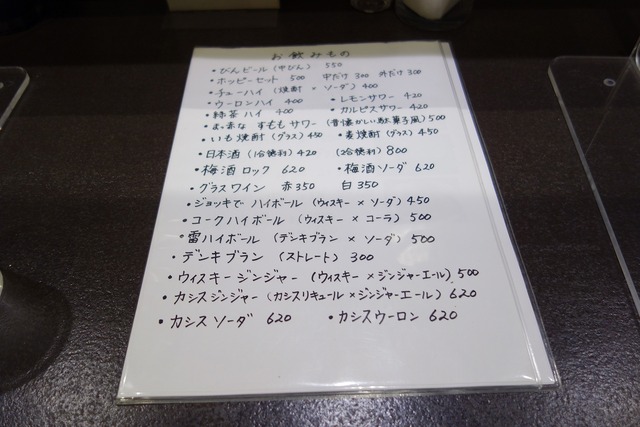 お飲みもの
・びんビール（中びん） 550
・ホッピーセット 500 中だけ 300 外だけ 300
・チューハイ（焼酎 × ソーダ）400
・ウーロンハイ 400 ・レモンサワー 420
・緑茶ハイ 400 ・カルピスサワー 420
・まっ赤な すももサワー（昔懐かしい駄菓子風）500
・いも焼酎（グラス）450 ・麦焼酎（グラス）450
・日本酒（1合徳利）420 （2合徳利）800
・梅酒ロック 620 ・梅酒ソーダ 620
・グラスワイン 赤350 白350
・ジョッキで ハイボール（ウィスキー × ソーダ）450
・コークハイボール（ウィスキー × コーラ）500
・雷ハイボール（デンキブラン × ソーダ）500
・デンキブラン（ストレート）300
・ウィスキージンジャー（ウィスキー × ジンジャーエール）500
・カシスジンジャー（カシスリキュール × ジンジャーエール）620
・カシスソーダ 620 ・カシスウーロン 620